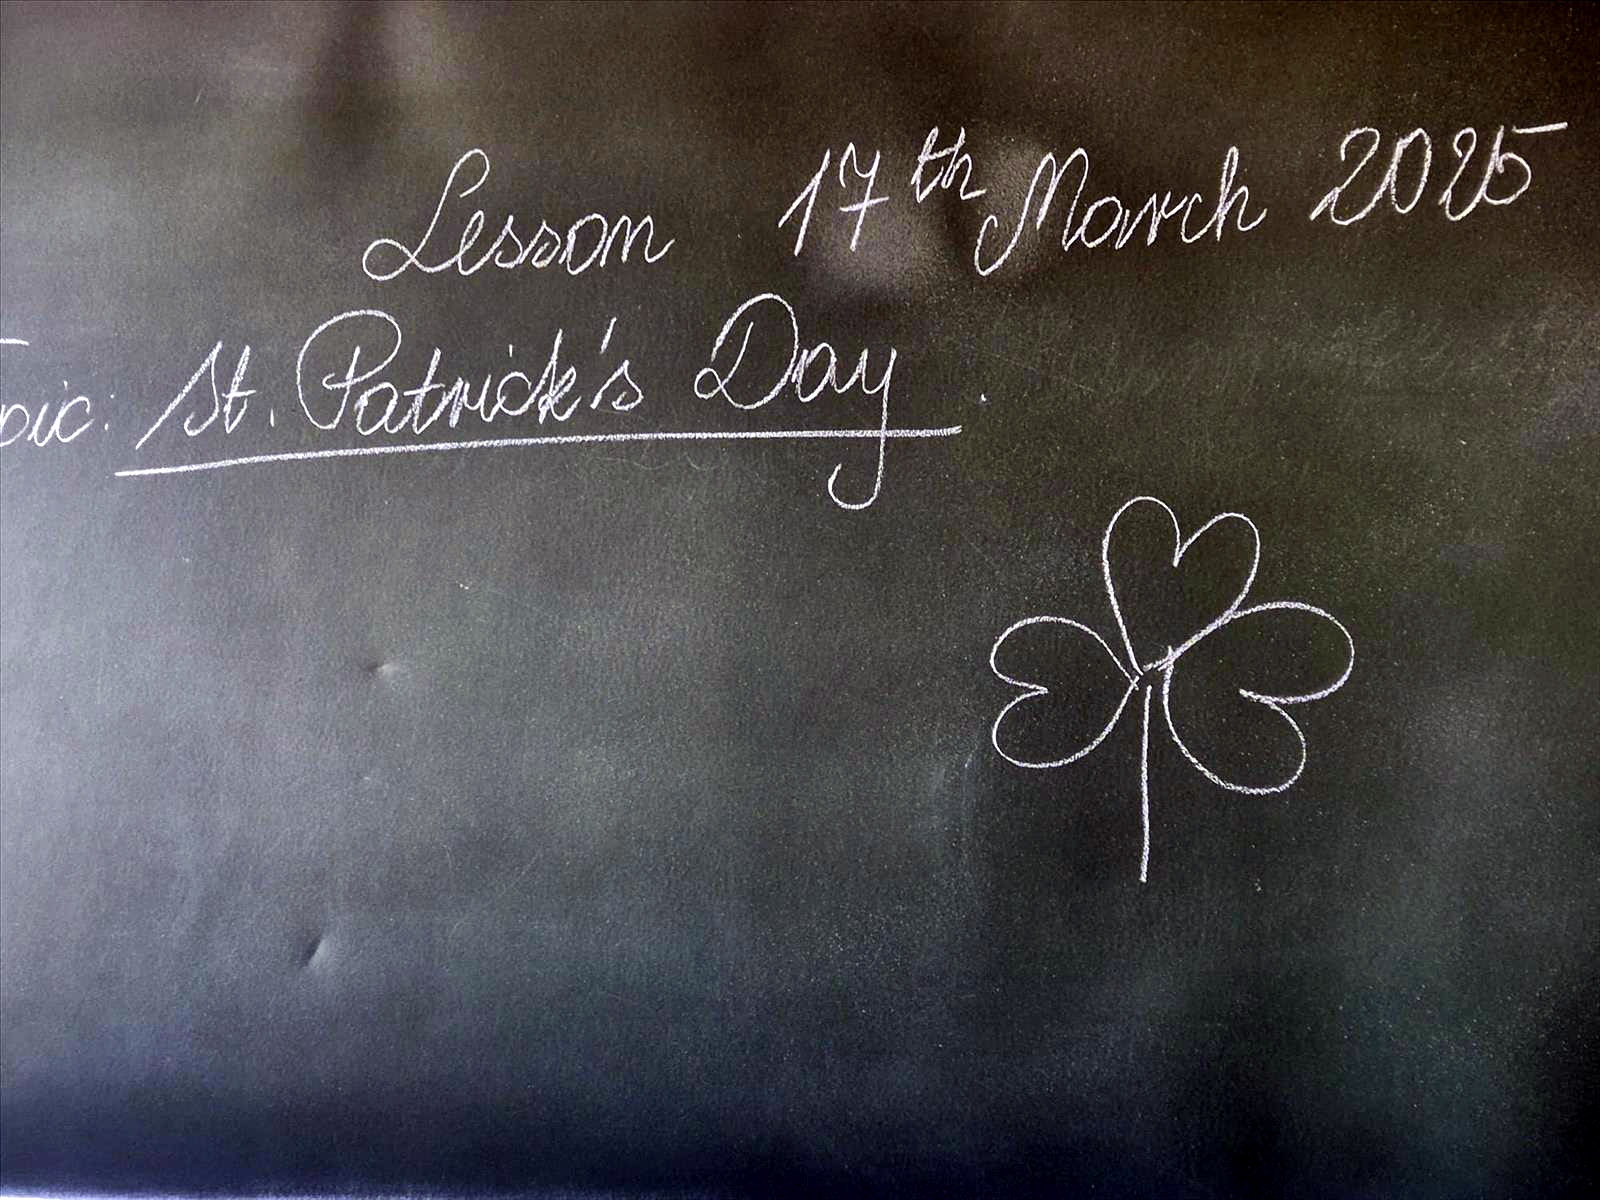 Lesson 17th March 2025
opic: St. Patrick's Day